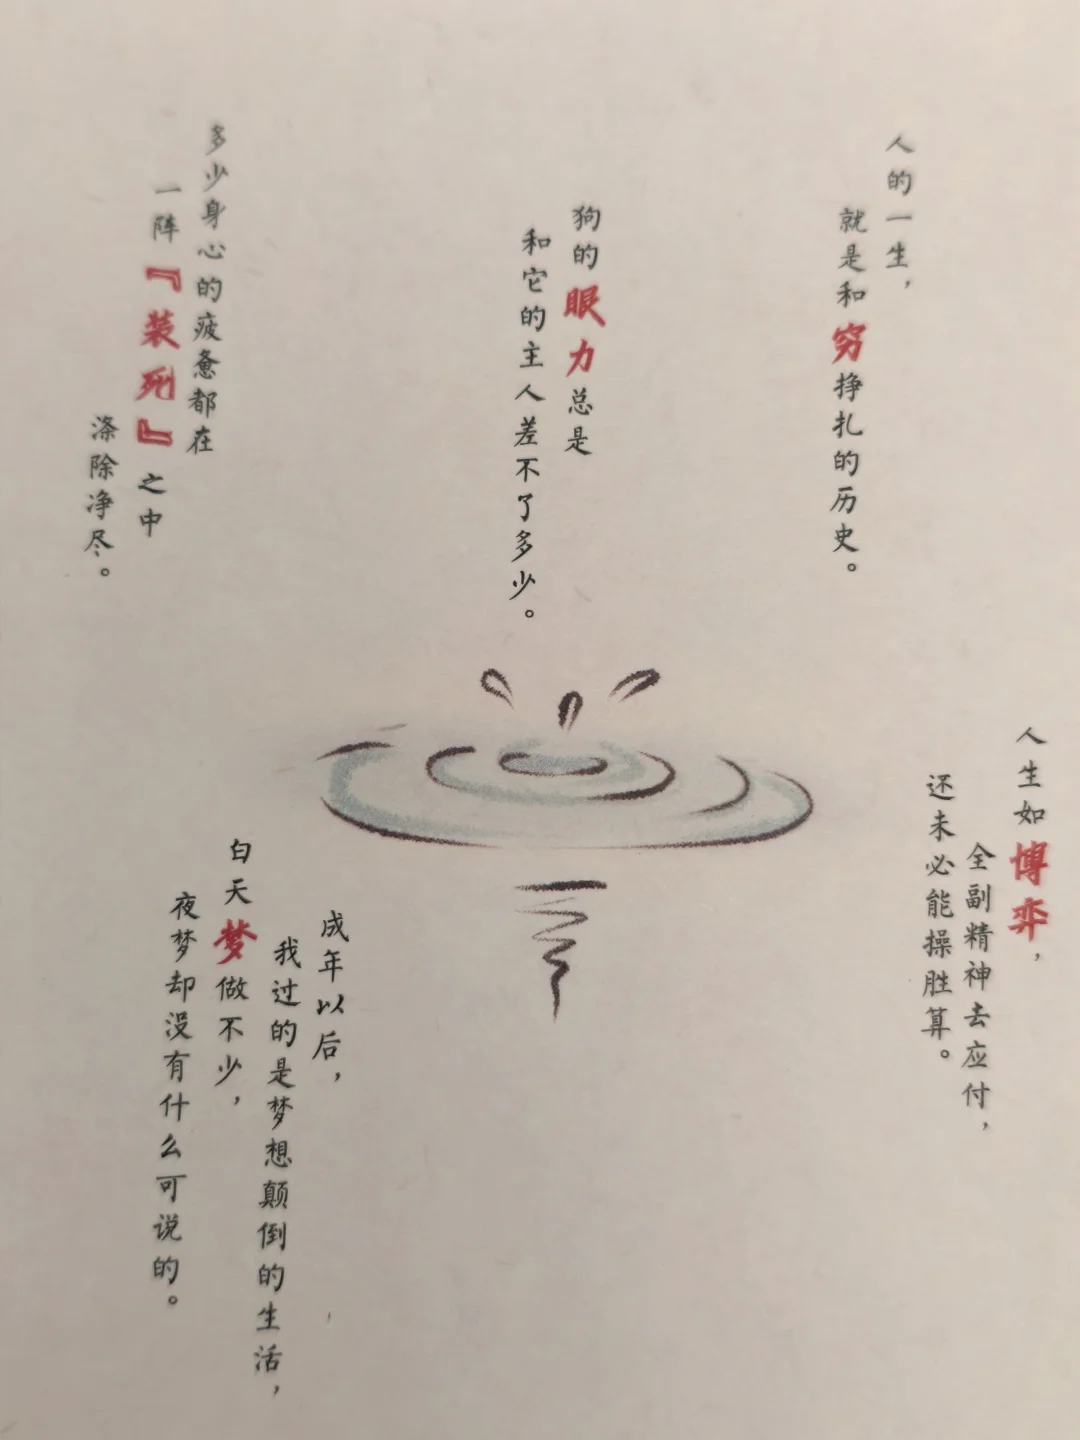 人的一生，
就是和穷挣扎的历史。
狗的眼力总是
和它的主人差不了多少。
多少身心的疲惫都在
一阵『装死』之中
涤除净尽。
人生如博弈，
全副精神去应付，
还未必能操胜算。
成年以后，
我过的是梦想颠倒的生活，
白天梦做不少，
夜梦却没有什么可说的。